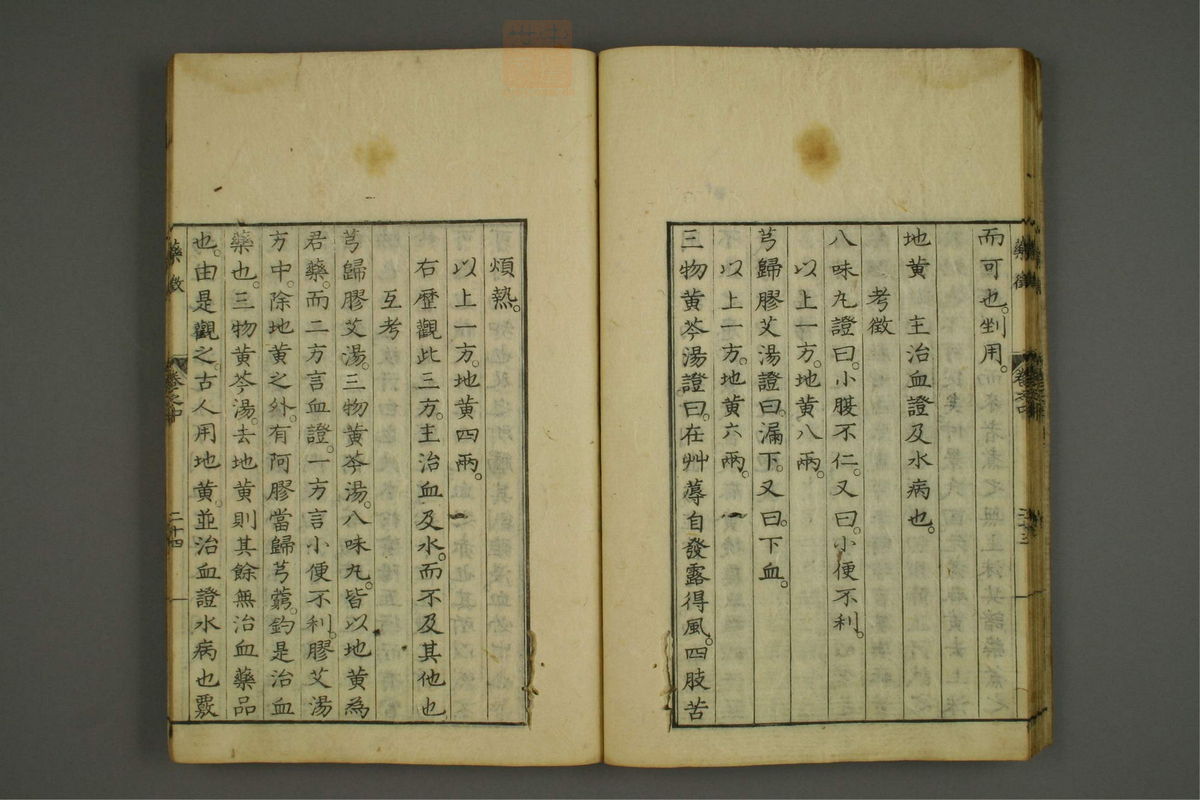 而可也。剉用。
地黄 主治血證及水病也。
考徴
八味丸證曰。小腹不仁。又曰。小便不利。
以上一方。地黄八兩。
芎歸膠艾湯證曰。漏下。又曰。下血。
以上一方。地黄六兩。
三物黄芩湯證曰。在艸蓐自發露得風。四肢苦
煩熱。
以上一方。地黄四兩。
右歴觀此三方。主治血及水。而不及其他也
互考
芎歸膠艾湯。三物黄芩湯。八味丸。皆以地黄為
君藥。而二方言血證。一方言小便不利。膠艾湯
方中。除地黄之外。有阿膠當歸芎藭。鈞是治血
藥也。三物黄芩湯。去地黄則其餘無治血藥品
也。由是觀之。古人用地黄。並治血證水病也覈
藥徴
卷之中
二十三
藥徴
卷之中
二十四